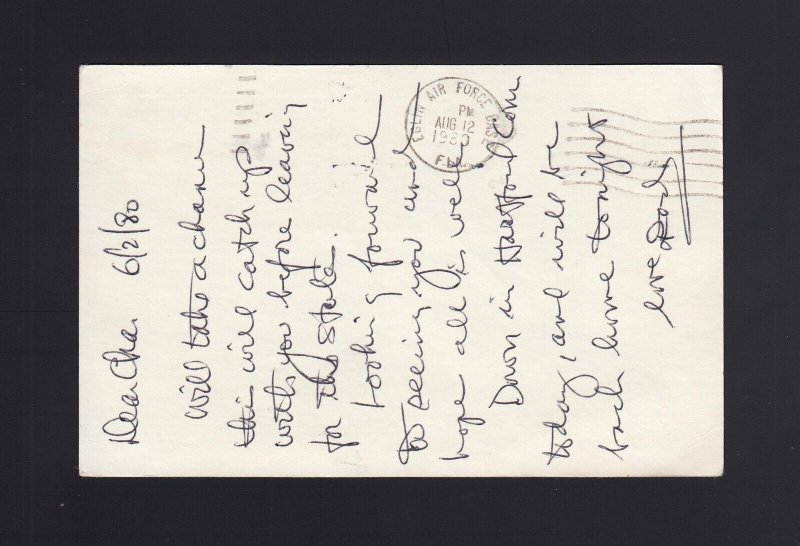 Dear Cha. 6/2/80
Will take a chance
this will catch up
with you before leaving
for the State.
Looking forward
to seeing you and
hope all is well.
Down in Hartford Conn.
today, and will be
back home tonight
love Dad
EGLIN AIR FORCE BASE
PM
AUG 12
1980